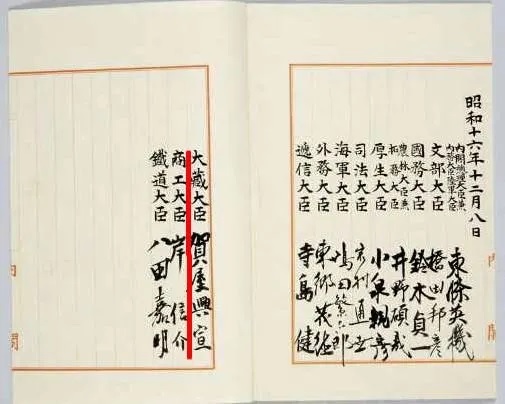 昭和十六年十二月八日
内閣總理大臣兼
内務大臣陸軍大臣 東條英機
文部大臣 橋田邦彦
國務大臣 鈴木貞一
農林大臣兼
拓務大臣 井野碩哉
厚生大臣 小泉親彦
司法大臣 岩村通世
海軍大臣 嶋田繁太郎
外務大臣 東郷茂徳
遞信大臣 寺島健
内閣
大藏大臣 賀屋興宣
商工大臣 岸信介
鐵道大臣 八田嘉明
内閣